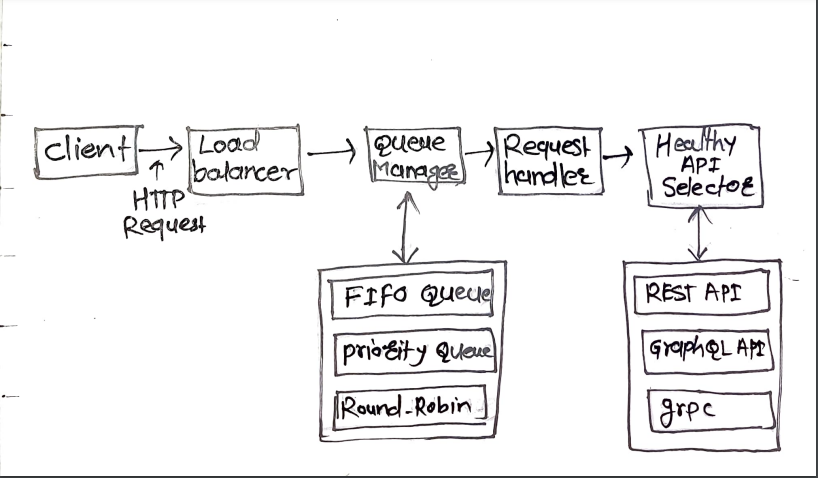 Client
HTTP
Request
Load
balancer
Queue
Manager
Request
handler
Healthy
API
Selector
FIFO Queue
Priority Queue
Round-Robin
REST API
GraphQL API
grpc